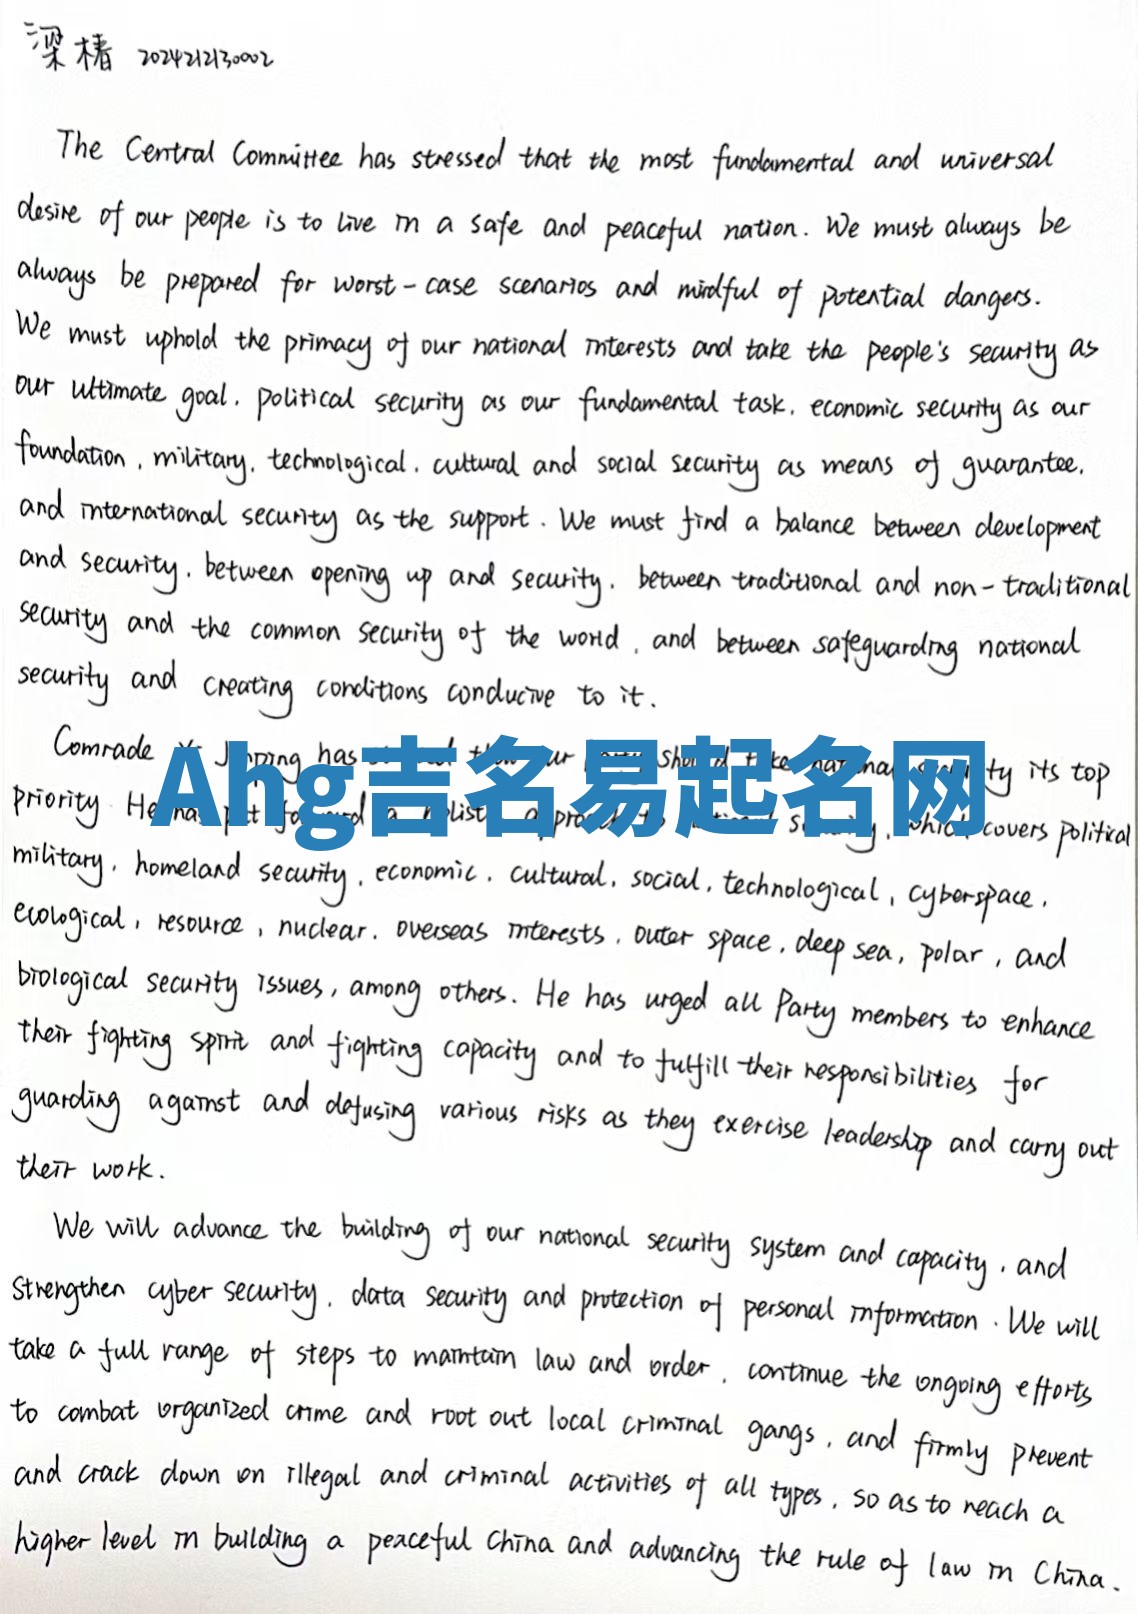 梁椿 2024212130002
The Central Committee has stressed that the most fundamental and universal
desire of our people is to live in a safe and peaceful nation. We must always be
always be prepared for worst-case scenarios and mindful of potential dangers.
We must uphold the primacy of our national interests and take the people's security as
our ultimate goal, political security as our fundamental task, economic security as our
foundation, military, technological, cultural and social security as means of guarantee,
and international security as the support. We must find a balance between development
and security, between opening up and security, between traditional and non-traditional
security and the common security of the world, and between safeguarding national
security and creating conditions conducive to it.
Comrade Jinping has should its top
Ahg吉名易起名网
priority He has put forward a holistic approach to security, which covers political
military, homeland security, economic, cultural, social, technological, cyberspace,
ecological, resource, nuclear, overseas interests, outer space, deep sea, polar, and
biological security issues, among others. He has urged all Party members to enhance
their fighting spirit and fighting capacity and to fulfill their responsibilities for
guarding against and defusing various risks as they exercise leadership and carry out
their work.
We will advance the building of our national security system and capacity, and
strengthen cyber security, data security and protection of personal information. We will
take a full range of steps to maintain law and order, continue the ongoing efforts
to combat organized crime and root out local criminal gangs, and firmly prevent
and crack down on illegal and criminal activities of all types, so as to reach a
higher level in building a peaceful China and advancing the rule of law in China.